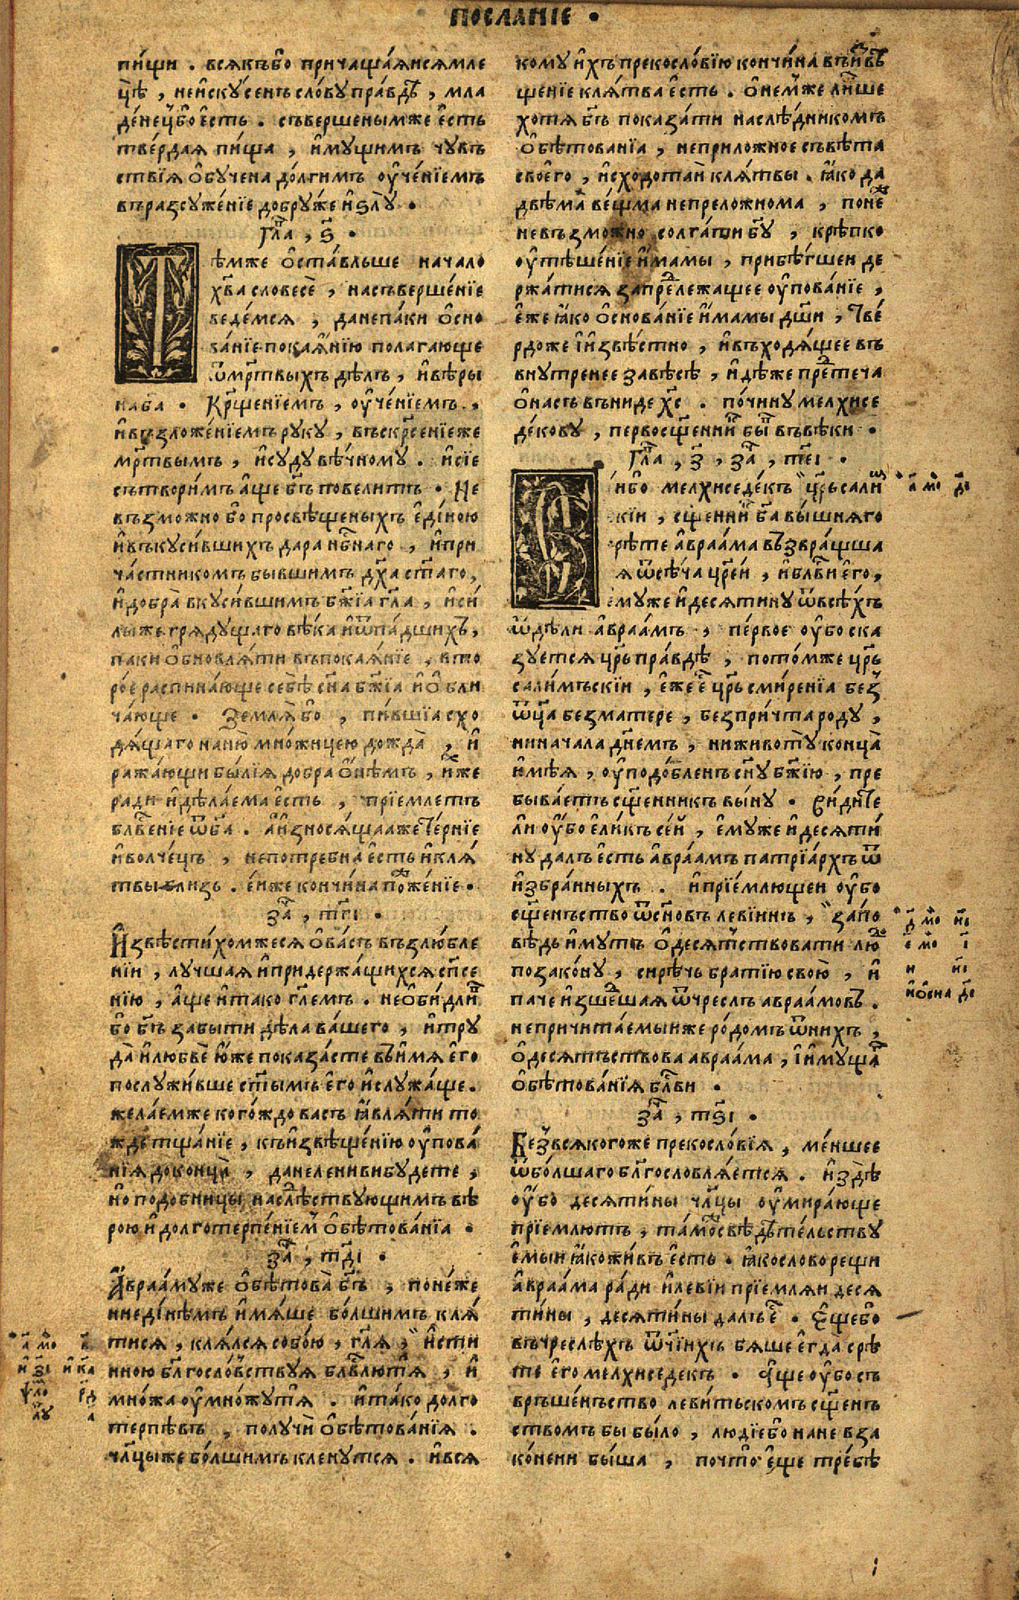 ПОСЛАНІЕ •
пи́щи . всякъбо причаща́яисямле
цѣ̀ , неискусенъ сло́ву пра́вдѣ , мла
дене́цбо есть . съвершенымже е́сть
тве́рдая пи́ща , иму́щимъ чувъ
ствїя обучена до́лгимъ ѹче́нїемъ
въразсуже́нїе добру́же и ѕлу̀ •
Гл҃а , ѕ҃ •
Тѣ́мже оста́вльше начало
хв҃а словесѐ , насъверше́нїе
веде́мся , данепа́ки осно
ва́нїе покая́нїю полага́юще
ѿмрт҃выхъ дѣ́лъ , ивѣ́ры
наб҃а . Крщ҃енїемъ , ѹче́нїемъ ,
ивъзложе́нїемъ руку̀ , въскрс҃енїеже
мрт҃вымъ , исуду вѣ́чному . исїе
сътвори́мъ а́ще бг҃ъ повели́тъ . Не
възмо́жно бо просвѣще́ныхъ еди́ною
ивъкуси́вшихъ дара нбс҃наго , ипри
ча́стникомъ бывшимъ дх҃а ст҃а́го ,
идобра̀ вкуси́вшимъ бж҃їа гл҃а , иси́
лыже гряду́щаго вѣ́ка иѿпа́дшихъ ,
паки обновля́ти въпокая́нїе , вто
ро́е распина́юще себѣ̀ сн҃а бж҃їа и обли
ча́юще . Земля̀бо , пи́вшїа схо
дя́щаго наню̀ мно́жицею дождя̀ , и
ража́ющи бы́лїя добра о́нѣмъ , и́мже
ради идѣ́лаема есть , прїемлетъ
блв҃енїе ѿб҃а . аизнося́щааже те́рнїе
иволче́цъ , непотребна е́сть икля́
твы близь . е́йже кончи́на пожже́нїе •
за҃ , тг҃і •
Извѣсти́хомжеся ова́съ възлю́бле
нїи , лу́чшая ипридержа́щихся спс҃е
нїю , а́ще итако гл҃емъ . необи́длив
бо бг҃ъ забы́ти дѣла ва́шего , итру
да̀ илюбвѐ ю́же показа́сте въимя его
послужи́вше ст҃ымъ его ислужа́ще .
жела́емже кого́ждо васъ явля́ти то
жде тща́нїе , къизвѣще́нїю ѹпова́
нїя доконца̀ , данелениви бу́дете ,
но подобницы наслѣ́дствующимъ вѣ
рою и долготерпе́нїемъ обѣтова́нїа •
за҃ , тд҃і •
Авраа́муже обѣтова̀ бг҃ъ , поне́же
ниеди́нѣмъ имя́ше бо́лшимъ кля́
тися , кля́лся собо́ю , гл҃я , и́сти
нною блг҃ослове́ствуя блв҃лютя , и
мно́жа ѹмно́жутя . итако долго
терпѣ́въ , получѝ обѣтова́нїя .
чл҃цыже бо́лшимъ клену́тся . ився
кому ихъ прекосло́вїю кончи́на въизвѣ
щенїе кля́тва есть . о́немже ли́ше
хотя̀ бг҃ъ показа́ти наслѣ́дникомъ
обѣтова́нїа , неприло́жное съвѣ́та
своего̀ , исходотаи кля́твы . я́ко да
двѣма̀ ве́щма непрело́жнома , поне́
невъзмо́жно солга́ти бг҃у , крѣ́пко
ѹтѣше́нїе и́мамы , прибѣ́гшеи де
ржа́тися запредлежащее ѹпова́нїе ,
е́же я́ко осно́ванїе и́мамы дш҃и , тве́
рдоже и извѣ́стно , ивъходя́щее въ
вну́тренее завѣ́сѣ , идѣже прете́ча
она́съ въниде хс҃ . по́чину мелхисе
де́кову , первосщ҃енникъ бы́въ въвѣ́ки •
Гл҃а , з҃ , за҃ , те҃і •
Сибо мелхиседе́къ цр҃ь сали́м
кїи , сщ҃енникъ б҃а вы́шняго
срѣ́те авраа́ма възвра́щша
я ѿсѣ́ча цр҃еи , иблв҃и его̀ ,
ему́же идесяти́ну ѿвсѣ́хъ
ѿдѣли авраа́мъ , пе́рвое ѹ́бо ска
зу́ется цр҃ь пра́вдѣ , пото́мже цр҃ь
сали́мъскїи , е́же е҃ цр҃ь смире́нїа без
ѿц҃а безма́тере , безпри́чта роду ,
ниначала дн҃емъ , ниживоту̀ конца̀
имѣ́я , ѹподо́бленъ сн҃у бж҃їю , пре
быва́етъ сщ҃енникъ вы́ну . Види́те
ли ѹ́бо ели́къ се́й , ему́же идесяти́
ну далъ е́сть авраа́мъ патрїа́рхъ ѿ
избра́нныхъ . ипрїе́млющеи ѹ́бо
сщ҃еньство ѿсн҃овъ леви́инъ , за́по
вѣдь и́мутъ одесятствовати лю́ди
позако́ну , си́рѣчь бра́тїю свою̀ , и
паче изше́дшая ѿчре́слъ авраамовъ .
непричита́емыиже ро́домъ ѿни́хъ ,
одеся́тьствова авраа́ма , ииму́ща
обѣтова́нїя блв҃и •
за҃ , тѕ҃і •
Безвсякогоже прекосло́вїя , ме́ншее
ѿбо́лшаго блг҃ословля́ется . издѣ̀
ѹ́бо десяти́ны чл҃цы ѹмира́юще
прїемлютъ , та́може свѣдѣ́тельству
емыи я́ко жи́въ есть . якослово рещи
авраа́ма ра́ди илеві́и прїе́мляи деся
ти́ны , десяти́ны далъ е҃ . Ещебо
въчре́слѣхъ ѿчїихъ бяше егда срѣ́
те его мелхиседекъ . аще ѹ́бо съ
врьше́нъство леви́тьскомъ сщ҃енъ
ствомъ бы бы́ло , лю́дїебо нане вза
ко́нени бы́ша , почто̀ еще тре́бѣ